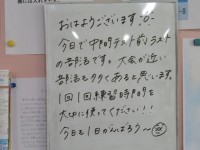 おはようございます！
今日で中間テスト前ラスト
の部活です。大会が近い
部活も多くあると思います。
1回1回練習時間を
大切に使ってください！！
今日も1日がんばろう〜